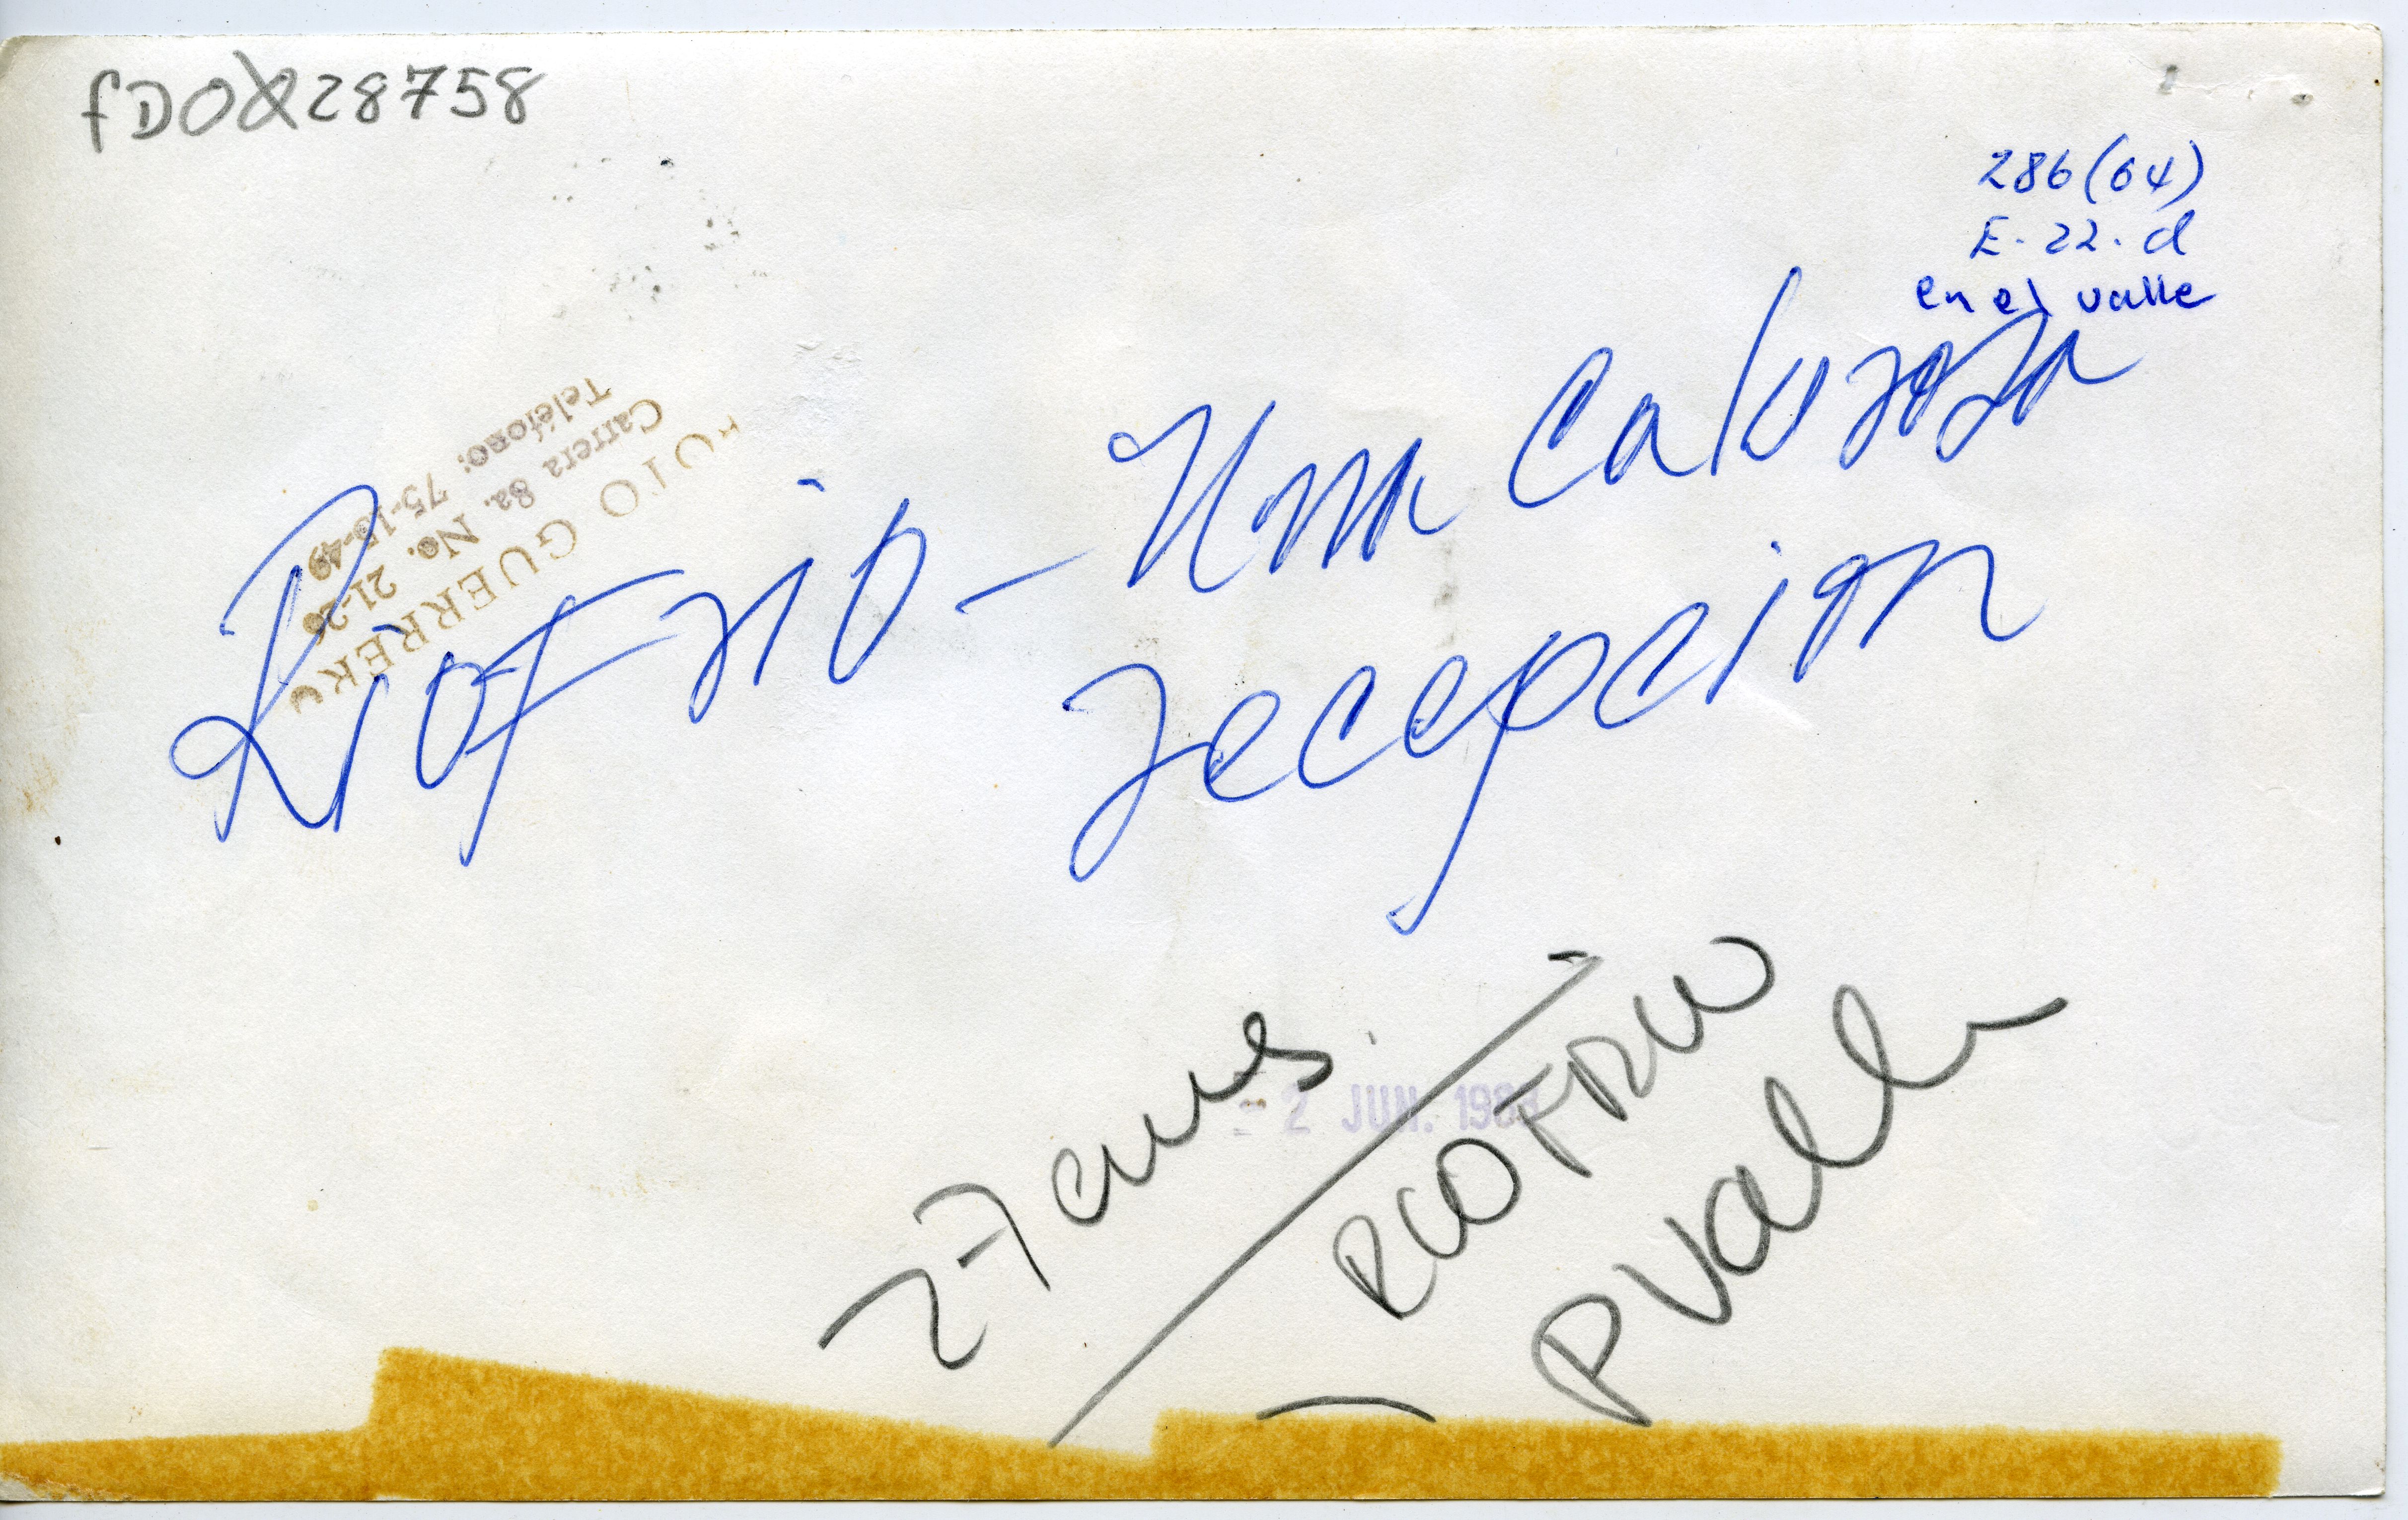 fDO028758
286(64)
E-22-d
en el valle
FOTO GUERRERO
Carrera 8a. No. 21-26
Teléfono: 75-15-49
Riofrio - Una calurosa
recepcion
27 cms
2 JUN. 198
RIOFRIO
Valle